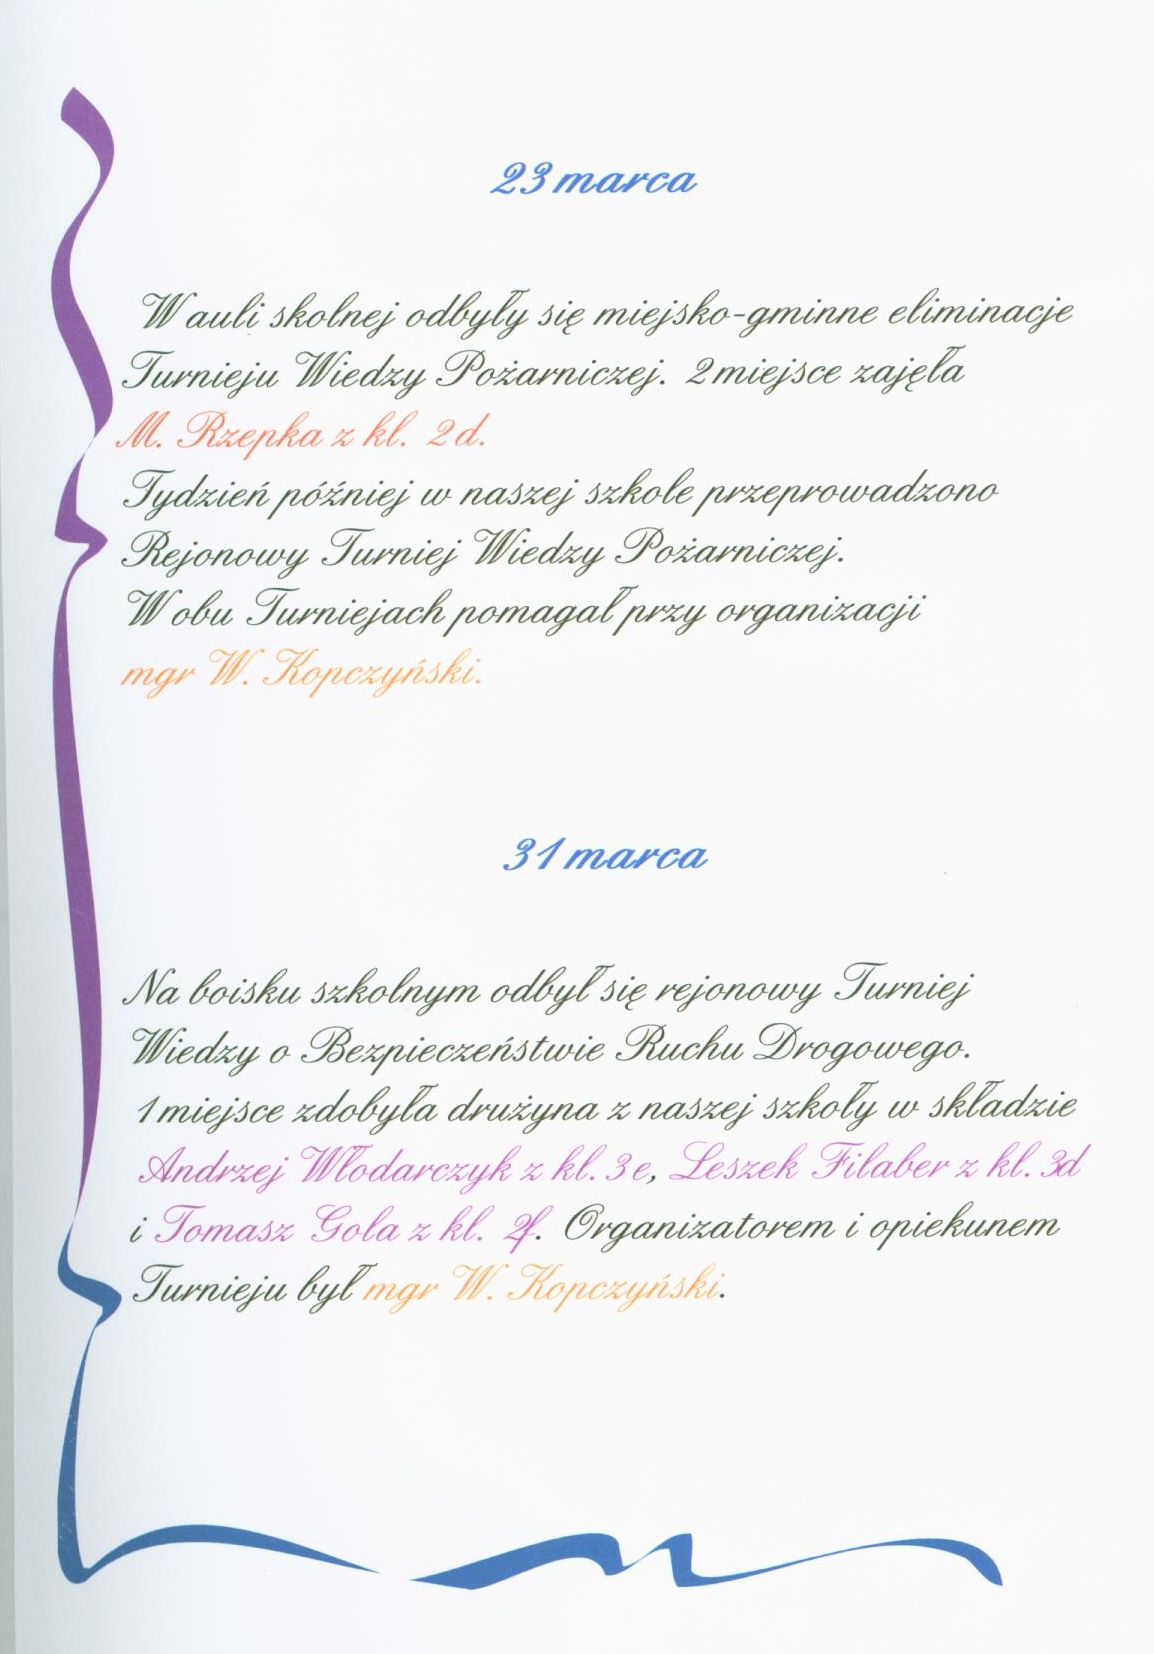 23 marca
W auli skolnej odbyły się miejsko-gminne eliminacje
Turnieju Wiedzy Pożarniczej. 2 miejsce zajęła
M. Rzepka z kl. 2 d.
Tydzień później w naszej szkole przeprowadzono
Rejonowy Turniej Wiedzy Pożarniczej.
W obu Turniejach pomagał przy organizacji
mgr W. Kopczyński.
31 marca
Na boisku szkolnym odbył się rejonowy Turniej
Wiedzy o Bezpieczeństwie Ruchu Drogowego.
1 miejsce zdobyła drużyna z naszej szkoły w składzie
Andrzej Włodarczyk z kl. 3 e, Leszek Filaber z kl. 3d
i Tomasz Gola z kl. 2f. Organizatorem i opiekunem
Turnieju był mgr W. Kopczyński.